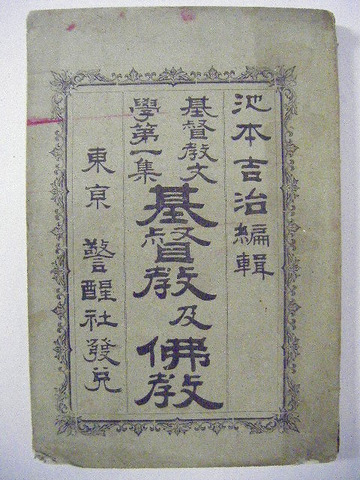 池本吉治編輯
基督教及佛教
基督教文
學第一集
東京 警醒社發兌